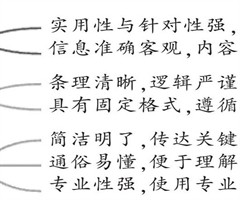 实用性与针对性强，
信息准确客观，内容
条理清晰，逻辑严谨
具有固定格式，遵循
简洁明了，传达关键
通俗易懂，便于理解
专业性强，使用专业